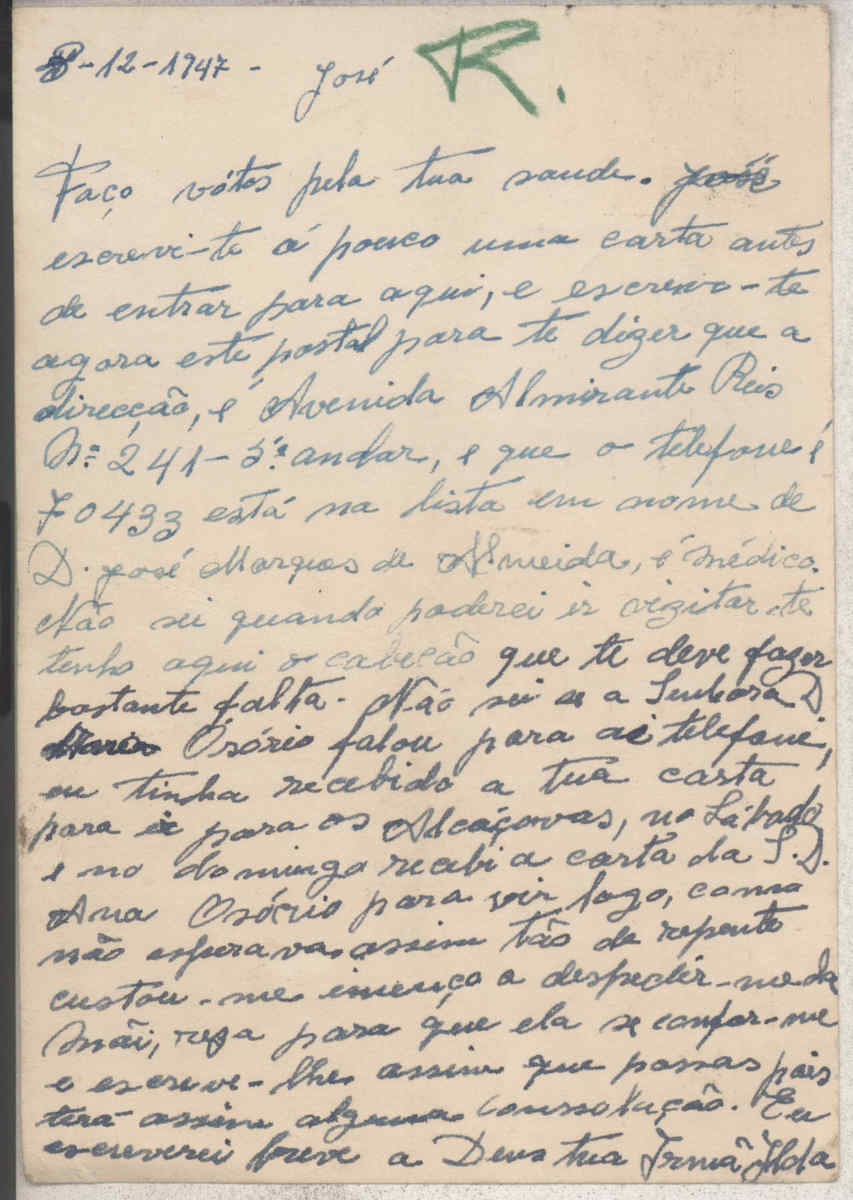 8-12-1947- José R.
Faço vótos pela tua saude. José
escrevi-te á pouco uma carta antes
de entrar para aqui, e escrevo-te
agora este postal para te dizer que a
direcção, é Avenida Almirante Reis
Nº 241-5º andar, e que o telefone é
70433 está na lista em nome de
D. José Marques de Almeida, é médico.
Não sei quando poderei ir vizitar-te
tenho aqui o cabeção que te deve fazer
bastante falta. Não sei se a Senhora D.
Maria Osório falou para ai telefone,
eu tinha recebido a tua carta
para ir para os Alcáçovas, no Sábado
e no domingo recebi a carta da S.D.
Ana Osório para vir logo, como
não esperava assim tão de repente
custou-me imenço a despedir-me da
Mãi, reza para que ela se confor-me
e escreve-lhe assim que possas pois
terá assim alguma conssolação. Eu
escreverei breve a Deus tua Irmã Ilda